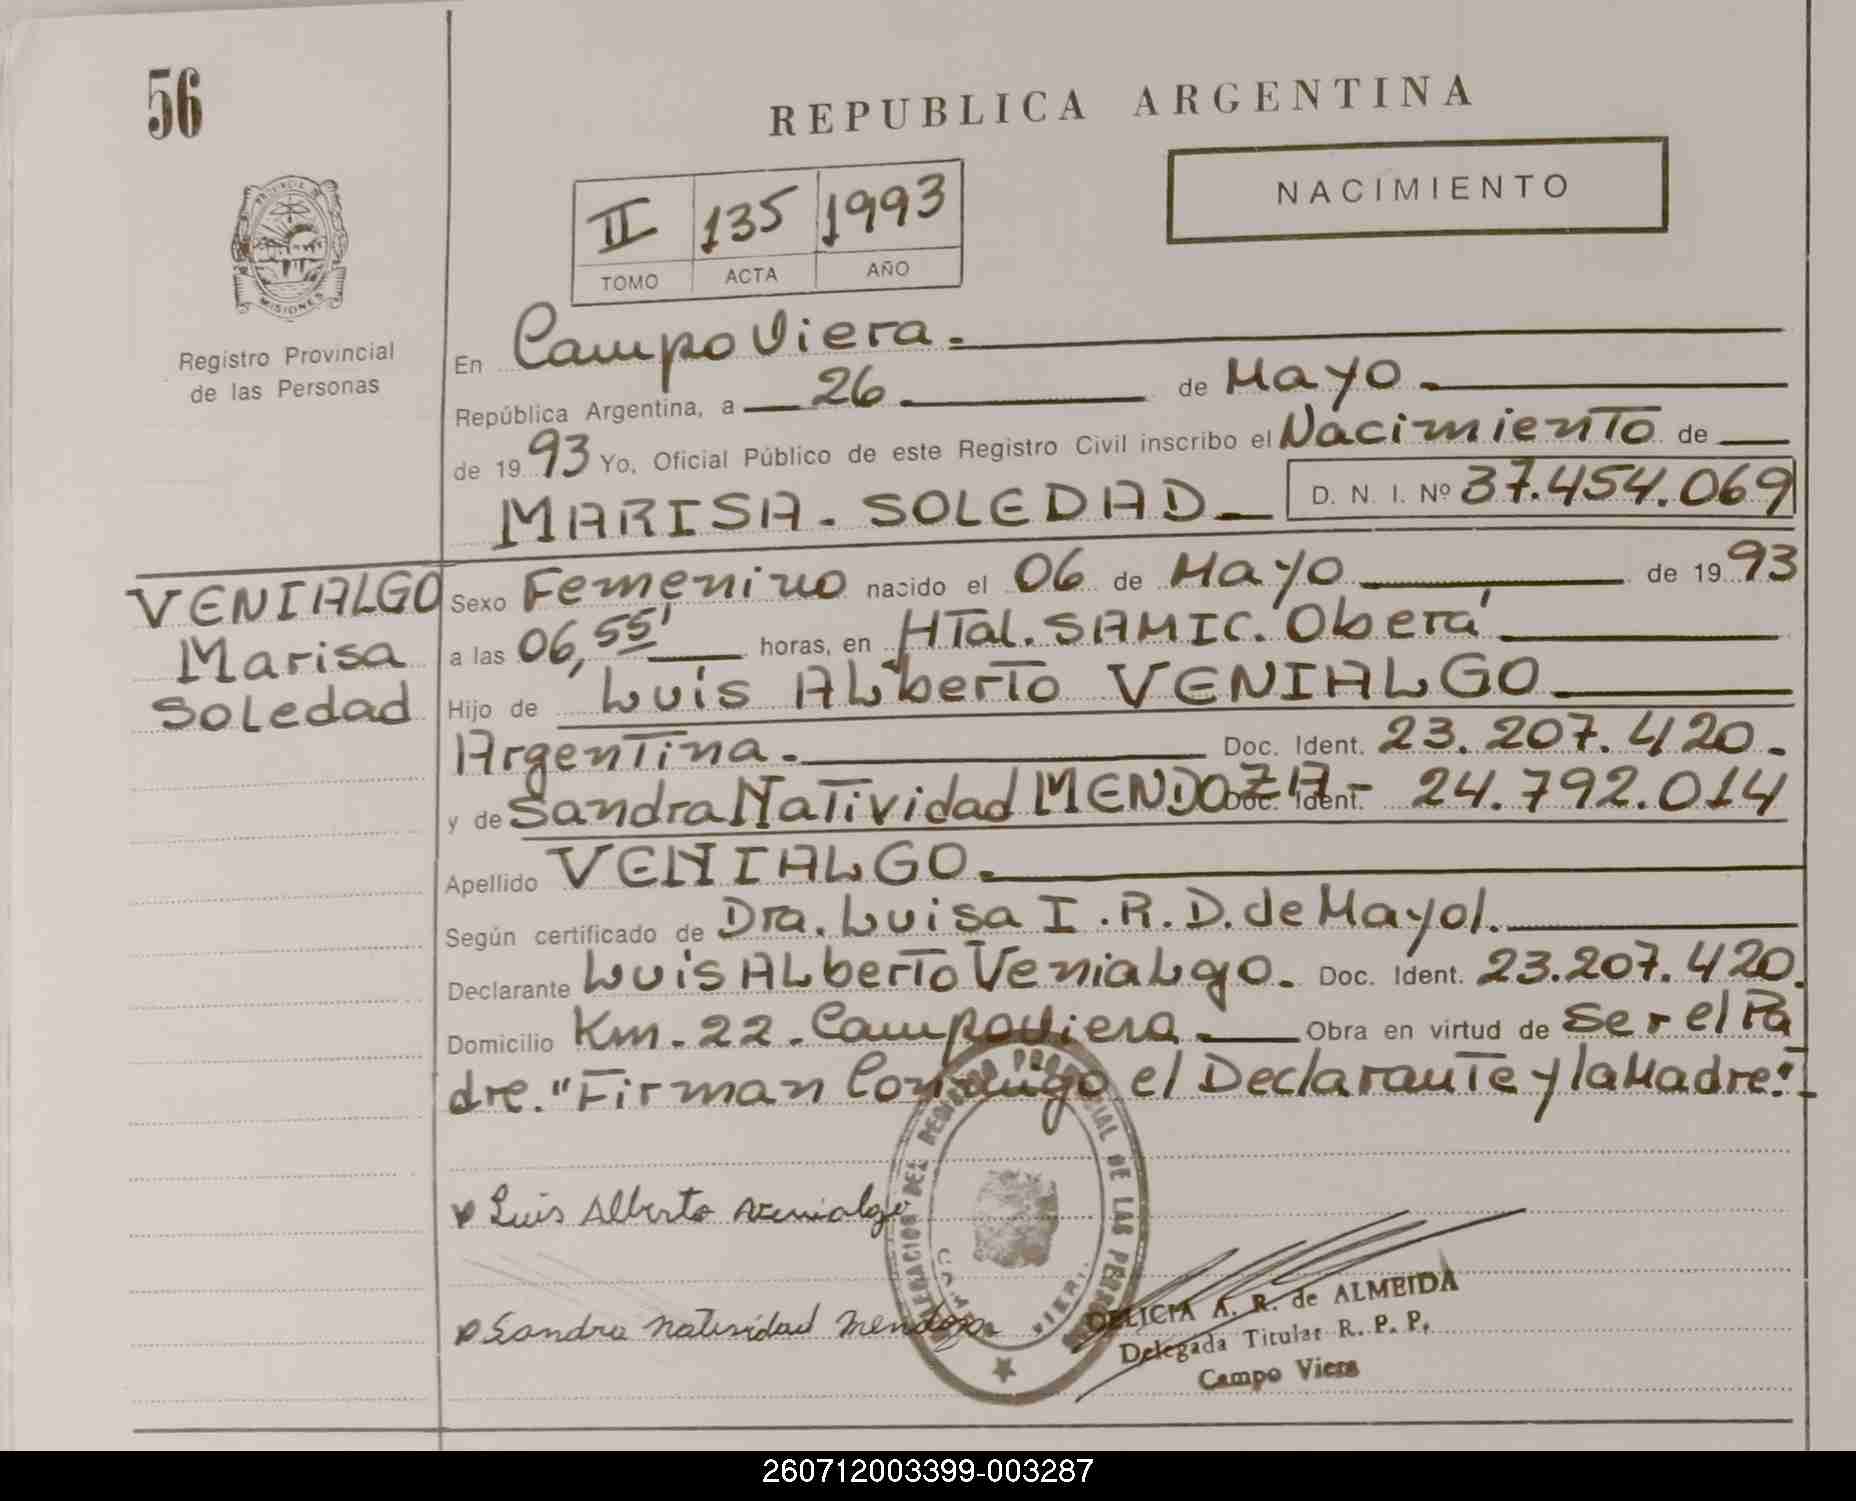 56
REPUBLICA ARGENTINA
NACIMIENTO
II 135 1993
TOMO ACTA AÑO
PROVINCIA DE MISIONES
Registro Provincial
de las Personas
En Campo Viera.
República Argentina, a 26 de Mayo.
de 19 93 Yo, Oficial Público de este Registro Civil inscribo el Nacimiento de
MARISA. SOLEDAD D. N. I. Nº 37.454.069
VENIALGO
Marisa
Soledad
Sexo Femenino nacido el 06 de Mayo de 19 93
a las 06,55' horas, en HTal. SAMIC. Oberá
Hijo de Luis ALberto VENIALGO
Argentina. Doc. Ident. 23.207.420.
y de Sandra Natividad MENDOZA - Doc. Ident. 24.792.014
Apellido VENIALGO.
Según certificado de Dra. Luisa I.R.D. de Mayol.
Declarante Luis ALberto Venialgo. Doc. Ident. 23.207.420.
Domicilio Km. 22. Campo Viera. Obra en virtud de Ser el Pa
dre. "Firman Conmigo el Declarante y la Madre."
Luis Alberto Venialgo
Sandra Natividad Mendoza
DEL REGISTRO PROVINCIAL DE LAS PERSONAS
CAMPO VIERA
DELICIA A. R. de ALMEIDA
Delegada Titular R. P. P.
Campo Viera
260712003399-003287